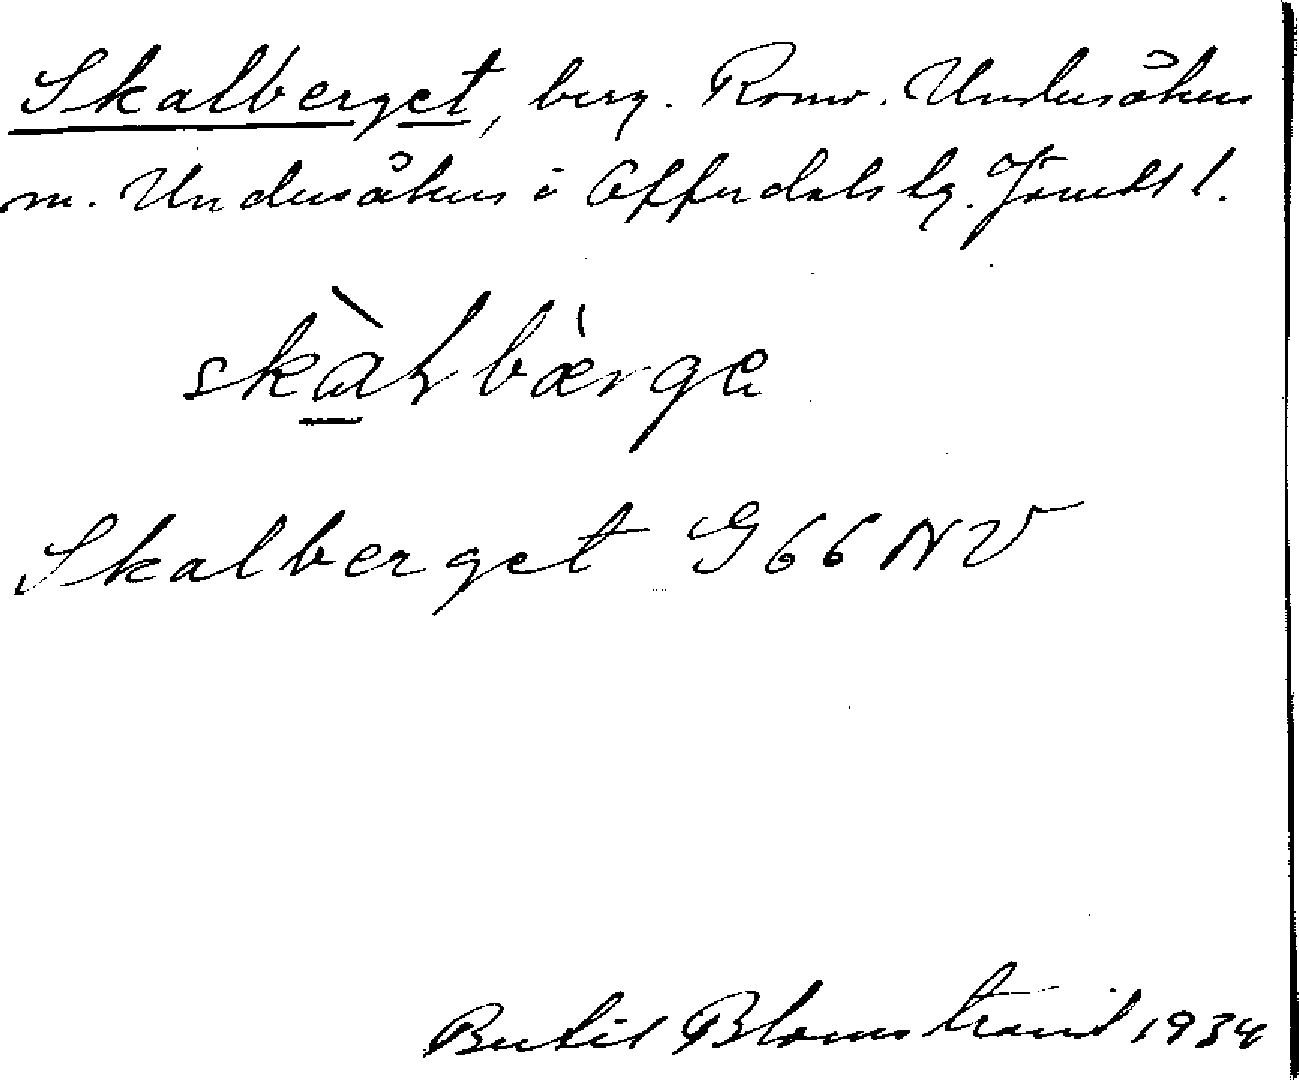 Skalberget, berg. Romv. Undersåkers
m. Undersåkers i Offerdals lg. Jämtl l.
skàɫbærge
Skalberget G66NV
Bertil Blomstrand 1934